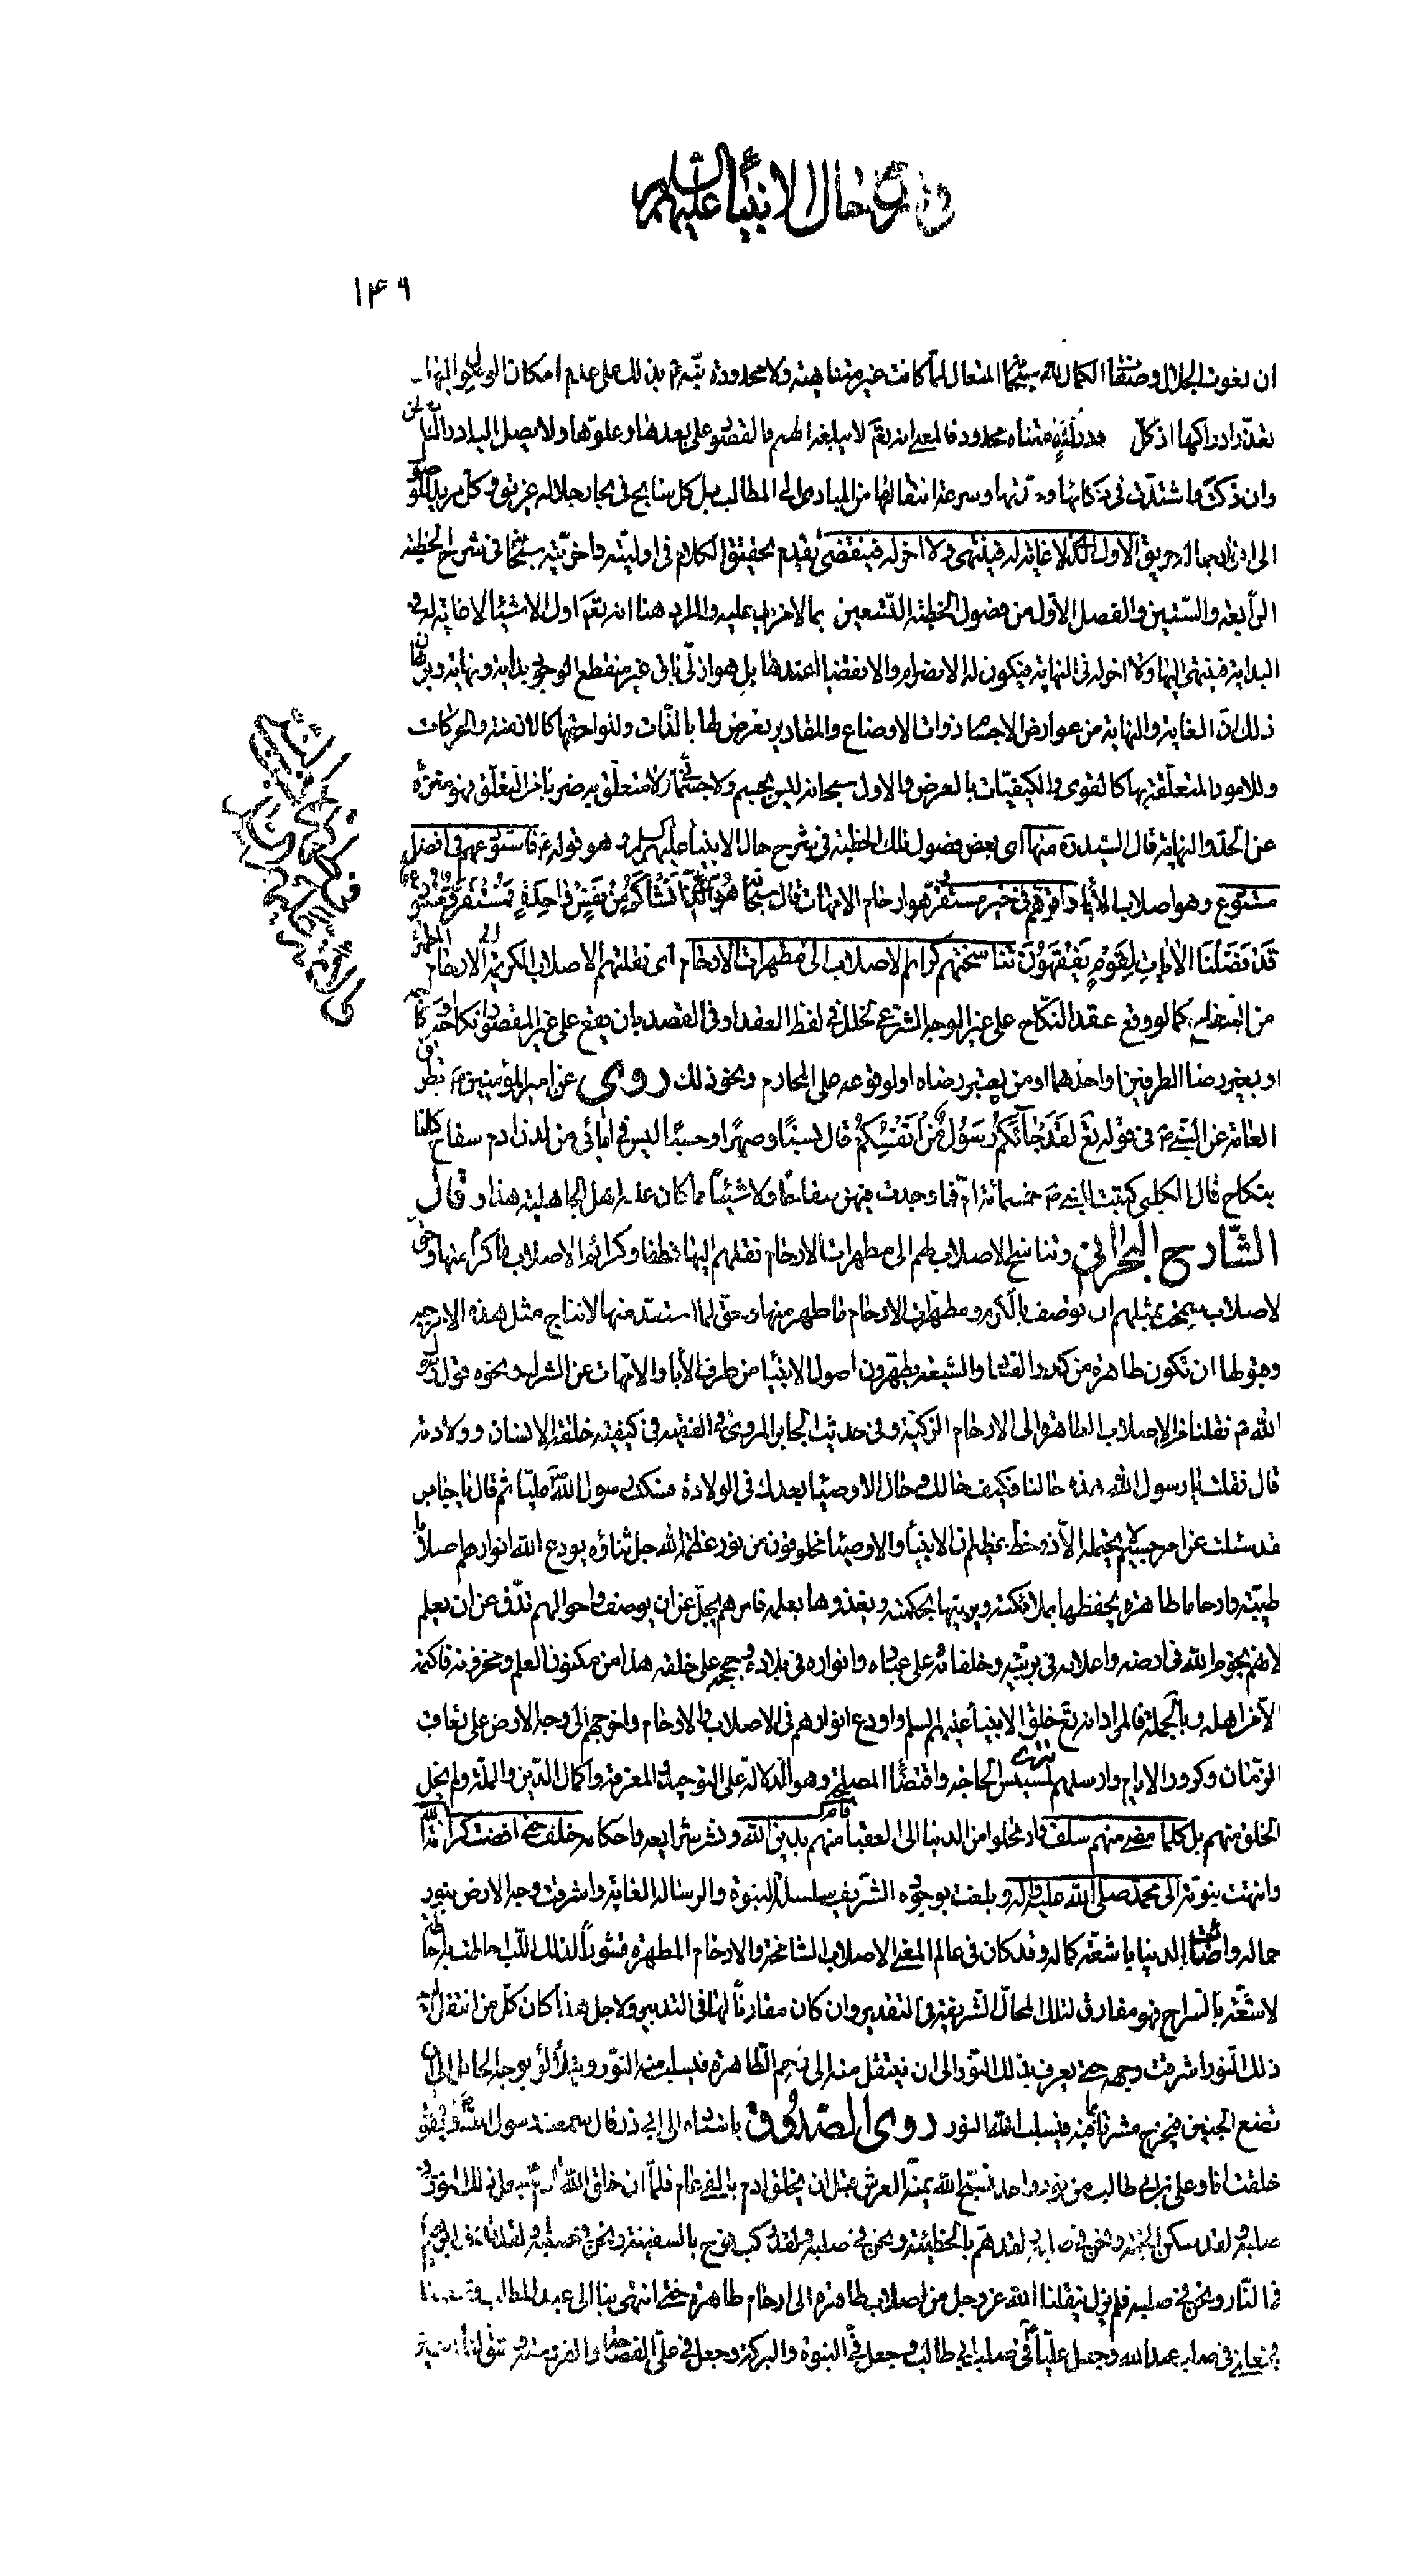 في شرح حال الانبياء عليهم السلم
١٤٦
ان نعوت الجلال وصفات الكمال لله سبحانه المتعال لما كانت غير متناهية ولا محدودة نبه ع بذلك على عدم امكان الوصول اليها
بعدّ وادراكها اذ كل مدرك متناه محدود فالمعنى انه تعالى لا يبلغه الهمم والقصود على بعدها وعلوها ولا يصل اليه ادراك
وان ذكت واشتدت في ذكائها وسرعة انتقالها من المبادى الى المطالب بل كل سابح في بحار جلاله غريق وكل
الى انوار جماله حريق الاول الذي لا غاية له فينتهى ولا اخر له فينقضى تقدم تحقيق الكلام في اوليته واخريته سبحانه في شرح الخطبة
الرابعة والستين والفصل الاول من فصول الخطبة التسعين بما لا مزيد عليه والمراد هنا انه تعالى اول الاشياء لا غاية له في
البداية فينتهى اليها ولا اخر له في النهاية فيكون له الانصرام والانقضاء عندها بل هو ازلى باق غير منقطع الوجود بداية ونهاية وبرهان
ذلك ان الغاية والنهاية من عوارض الاجسام ذوات الاوضاع والمقادير يعرض لها بالذات ولواحقها كالازمنة والحركات
وللامور المتعلقة بها كالقوى والكيفيات بالعرض والاول سبحانه ليس بجسم ولا جسماني ولا متعلق به ضربا من التعلق فهو منزه
عن الحد والنهاية قال السيد ره منها اى بعض فصول تلك الخطبة في شرح حال الانبياء عليهم السلم وهو قوله ع فاستودعهم في افضل
مستودع وهو اصلاب الآباء واقرهم في خير مستقر هو ارحام الامهات قال سبحانه هُوَ الَّذِي أَنْشَأَكُمْ مِنْ نَفْسٍ وَاحِدَةٍ فَمُسْتَقَرٌّ وَمُسْتَوْدَعٌ
قَدْ فَصَّلْنَا الْآيَاتِ لِقَوْمٍ يَفْقَهُونَ تناسختهم كرائم الاصلاب الى مطهرات الارحام اى نقلتهم الاصلاب الكريمة الى الارحام المطهرة
كما لو وقع عقد النكاح على غير الوجه الشرعي لخلل في لفظ العقد او في القصد بان يقع على غير المقصود نكاحه
او بغير رضا الطرفين او احدهما او من يعتبر رضاه او لوقوعه على المحارم ونحو ذلك روى عن امير المؤمنين ع
العامة عن النبي ص في قوله تعالى لَقَدْ جَاءَكُمْ رَسُولٌ مِنْ أَنْفُسِكُمْ قال نسبًا وصهرًا وحسبًا ليس في آبائي من لدن آدم سفاح كلنا
بنكاح قال الكلبي كتبت للنبي ص خمسمائة ام فما وجدت فيهن سفاحًا ولا شيئًا مما كان عليه اهل الجاهلية هذا وقال
الشارح البحراني وتناسخ الاصلاب لهم الى مطهرات الارحام نقلهم اليها نطفا وكرائم الاصلاب ما كرم منها وحق
لاصلاب سمحت بمثلهم ان توصف بالكرم ومطهرات الارحام ما طهر منها وحق لما استعد منها لانتاج مثل هذه الامزجة
وقبولها ان تكون طاهرة من كدر الفساد والشيعة يطهرون اصول الانبياء من طرف الآباء والامهات عن الشرك ونحوه قول رسول
الله ص نقلنا من الاصلاب الطاهرة الى الارحام الزكية وفي حديث الجابر المروى في الفقيه في كيفية خلقة الانسان وولادته
قال فقلت يا رسول الله هذه حالنا فكيف حالك وحال الاوصياء بعدك في الولادة فسكت رسول الله مليا ثم قال يا جابر
قد سئلت عن امر جسيم لا يحتمله الا ذو حظ عظيم ان الانبياء والاوصياء مخلوقون من نور عظمة الله جل ثناؤه يودع الله انوارهم اصلابا
طيبة وارحاما طاهرة يحفظها بملائكته ويربيها بحكمته ويغذوها بعلمه فامرهم يجل عن ان يوصف واحوالهم تدق عن ان يعلم
لانهم نجوم الله في ارضه واعلامه في بريته وخلفائه على عباده وانواره في بلاده وحججه على خلقه هذا من مكنون العلم ومخزونه فاكتمه
الا من اهله وبالجملة فالمراد انه تعالى خلق الانبياء عليهم السلم واودع انوارهم في الاصلاب والارحام واخرجهم الى وجه الارض على تعاقب
الزمان وكرور الايام وارسلهم تترى لمسيس الحاجة واقتضاء المصلحة وهو الدلالة على التوحيد والمعرفة واكمال الدين والملة ولم يخل
الخلق منهم بل كلما مضى منهم سلف وارتحلوا من الدنيا الى العقبى قام منهم بدين الله ونشر شرايعه واحكامه خلف حتى افضت كرامة الله
وانتهت نبوته الى محمد صلى الله عليه واله وبلغت بوجوده الشريف سلسلة النبوة والرسالة الغاية واشرقت وجه الارض بنور
جماله واضائت الدنيا باشعة كماله وقد كان في عالم المعنى الاصلاب الشامخة والارحام المطهرة قشورًا لذلك اللب
لاشعته بالسراج فهو مفارق لتلك المحال الشريفة في التقدير وان كان مقارنًا لها في التدبير ولاجل هذا كان كل من انتقل اليه
ذلك النور اشرقت وجهه حتى يعرف بذلك النور الى ان ينتقل منه الى رحم الطاهرة فيسلب منه النور ويتلألؤ بوجه الحامل الى ان
تضع الجنين فيخرج مشرقا فيسلب الله النور روى الصدوق باسناده الى ابي ذر قال سمعت رسول الله ص وهو يقول
خلقت انا وعلى بن ابي طالب من نور واحد نسبح الله يمنة العرش قبل ان يخلق ادم بالفي عام فلما ان خلق الله ادم جعل ذلك النور في
صلبه ولقد سكن الجنة ونحن في صلبه ولقد هم بالخطيئة ونحن في صلبه ولقد ركب نوح بالسفينة ونحن في صلبه ولقد قذف ابراهيم
في النار ونحن في صلبه فلم يزل ينقلنا الله عز وجل من اصلاب طاهرة الى ارحام طاهرة حتى انتهى بنا الى عبد المطلب
فجعلني في صلب عبد الله وجعل عليا في صلب ابي طالب وجعل في النبوة والبركة وجعل في علي الفصاحة والفروسية وشق لنا